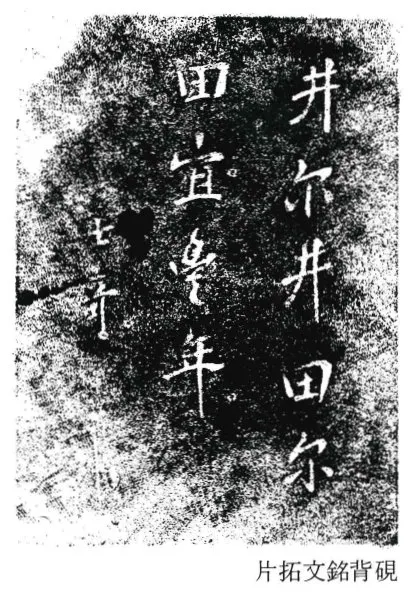 井尔井田尔
田宜豐年
士奇
硯背銘文拓片